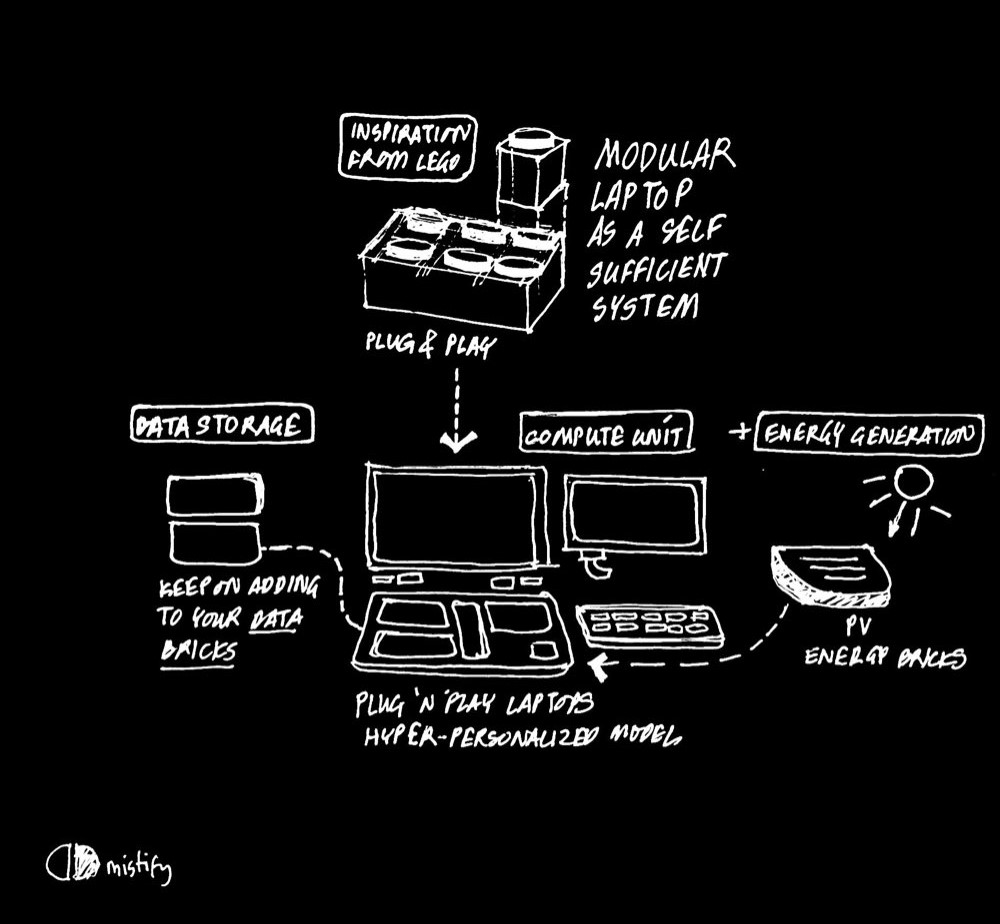 INSPIRATION
FROM LEGO
MODULAR
LAPTOP
AS A SELF
SUFFICIENT
SYSTEM
PLUG & PLAY
DATA STORAGE
COMPUTE UNIT
+ ENERGY GENERATION
KEEP ON ADDING
TO YOUR DATA
BRICKS
PV
ENERGY BRICKS
PLUG 'N' PLAY LAPTOPS
HYPER-PERSONALIZED MODEL
mistify